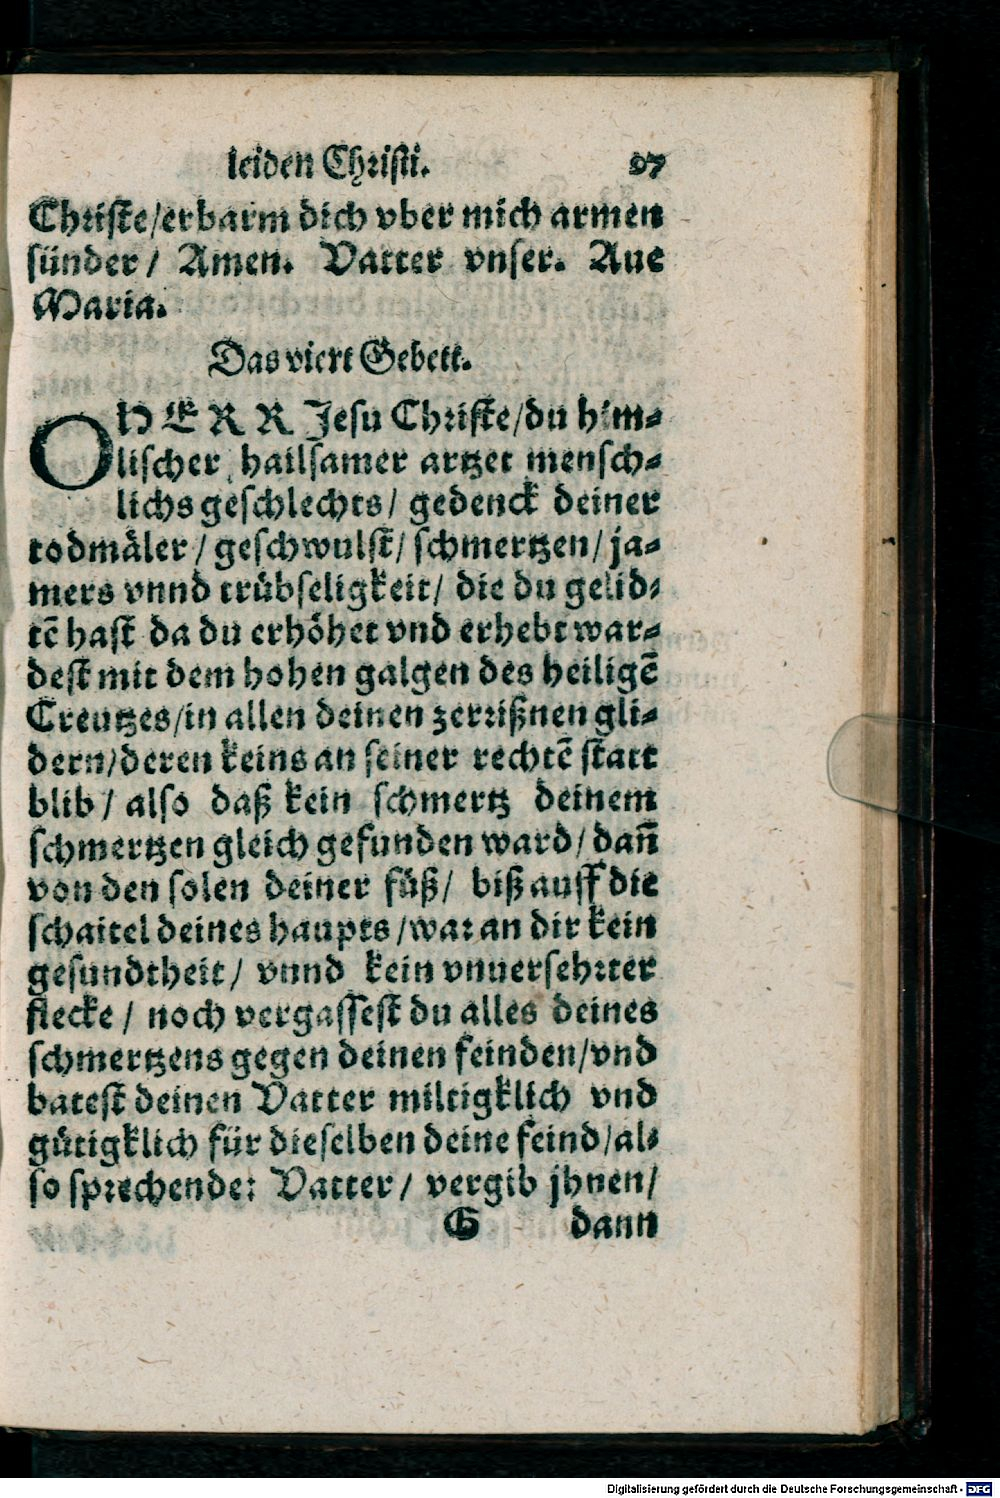 leiden Christi. 97
Christe/erbarm dich vber mich armen
sünder/ Amen. Vatter vnser. Aue
Maria.
Das viert Gebett.
O HERR Jesu Christe/du him-
lischer, hailsamer artzet mensch-
lichs geschlechts/ gedenck deiner
todmäler/ geschwulst/ schmertzen/ ja-
mers vnnd trübseligkeit/ die du gelid-
tē hast da du erhöhet vnd erhebt war-
dest mit dem hohen galgen des heiligē
Creutzes/in allen deinen zerrißnen gli-
dern/deren keins an seiner rechtē statt
blib/ also daß kein schmertz deinem
schmertzen gleich gefunden ward/ dañ
von den solen deiner füß/ biß auff die
schaitel deines haupts/war an dir kein
gesundtheit/ vnnd kein vnuersehrter
flecke/ noch vergassest du alles deines
schmertzens gegen deinen feinden/vnd
batest deinen Vatter miltigklich vnd
gütigklich für dieselben deine feind/al-
so sprechende: Vatter/ vergib jhnen/
G dann
Digitalisierung gefördert durch die Deutsche Forschungsgemeinschaft - DFG